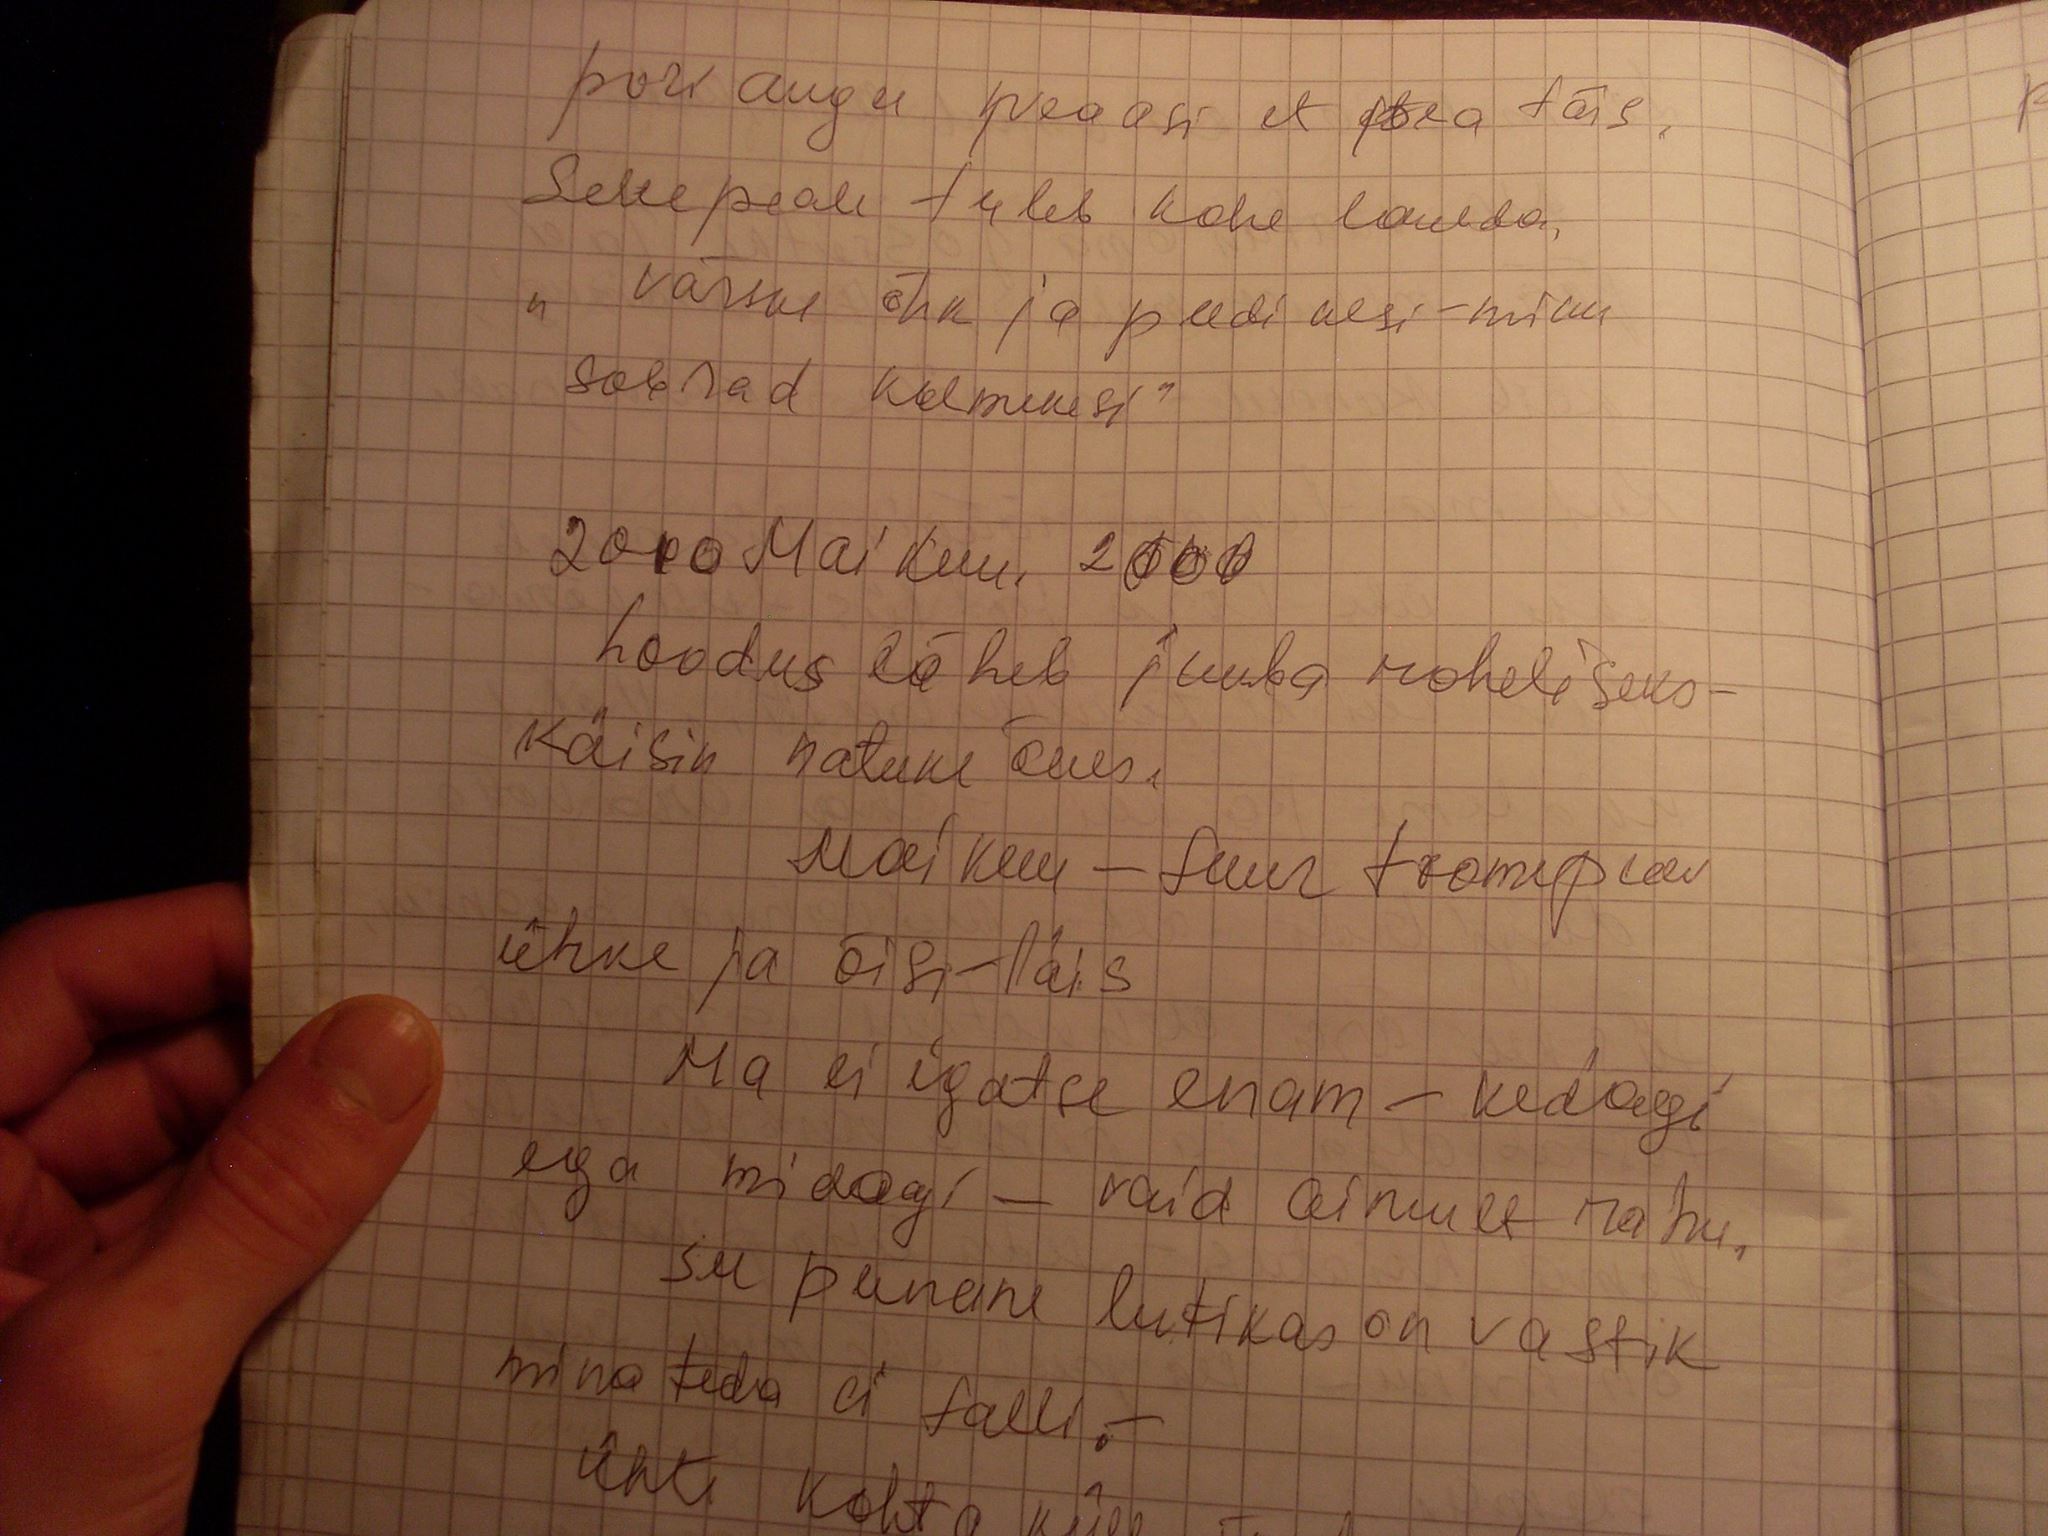 pori augu peaasi et pea täis.
Selle peale tuleb kohe laulda,
„ värske õhk ja puudi alsi-minu
sobrad kolmekesi"
2000 Mai kuu. 2000
loodus läheb juuba roheliseks-
käisin natuke õues.
Mai kuu – suur toomepuu
ühke ja õisi-täis
Ma ei igatse enam – kedaagi
ega midaagi – vaid ainult rahu.
su punane lutikas on vastik
mina teda ei salli.–
ühte kohta küll